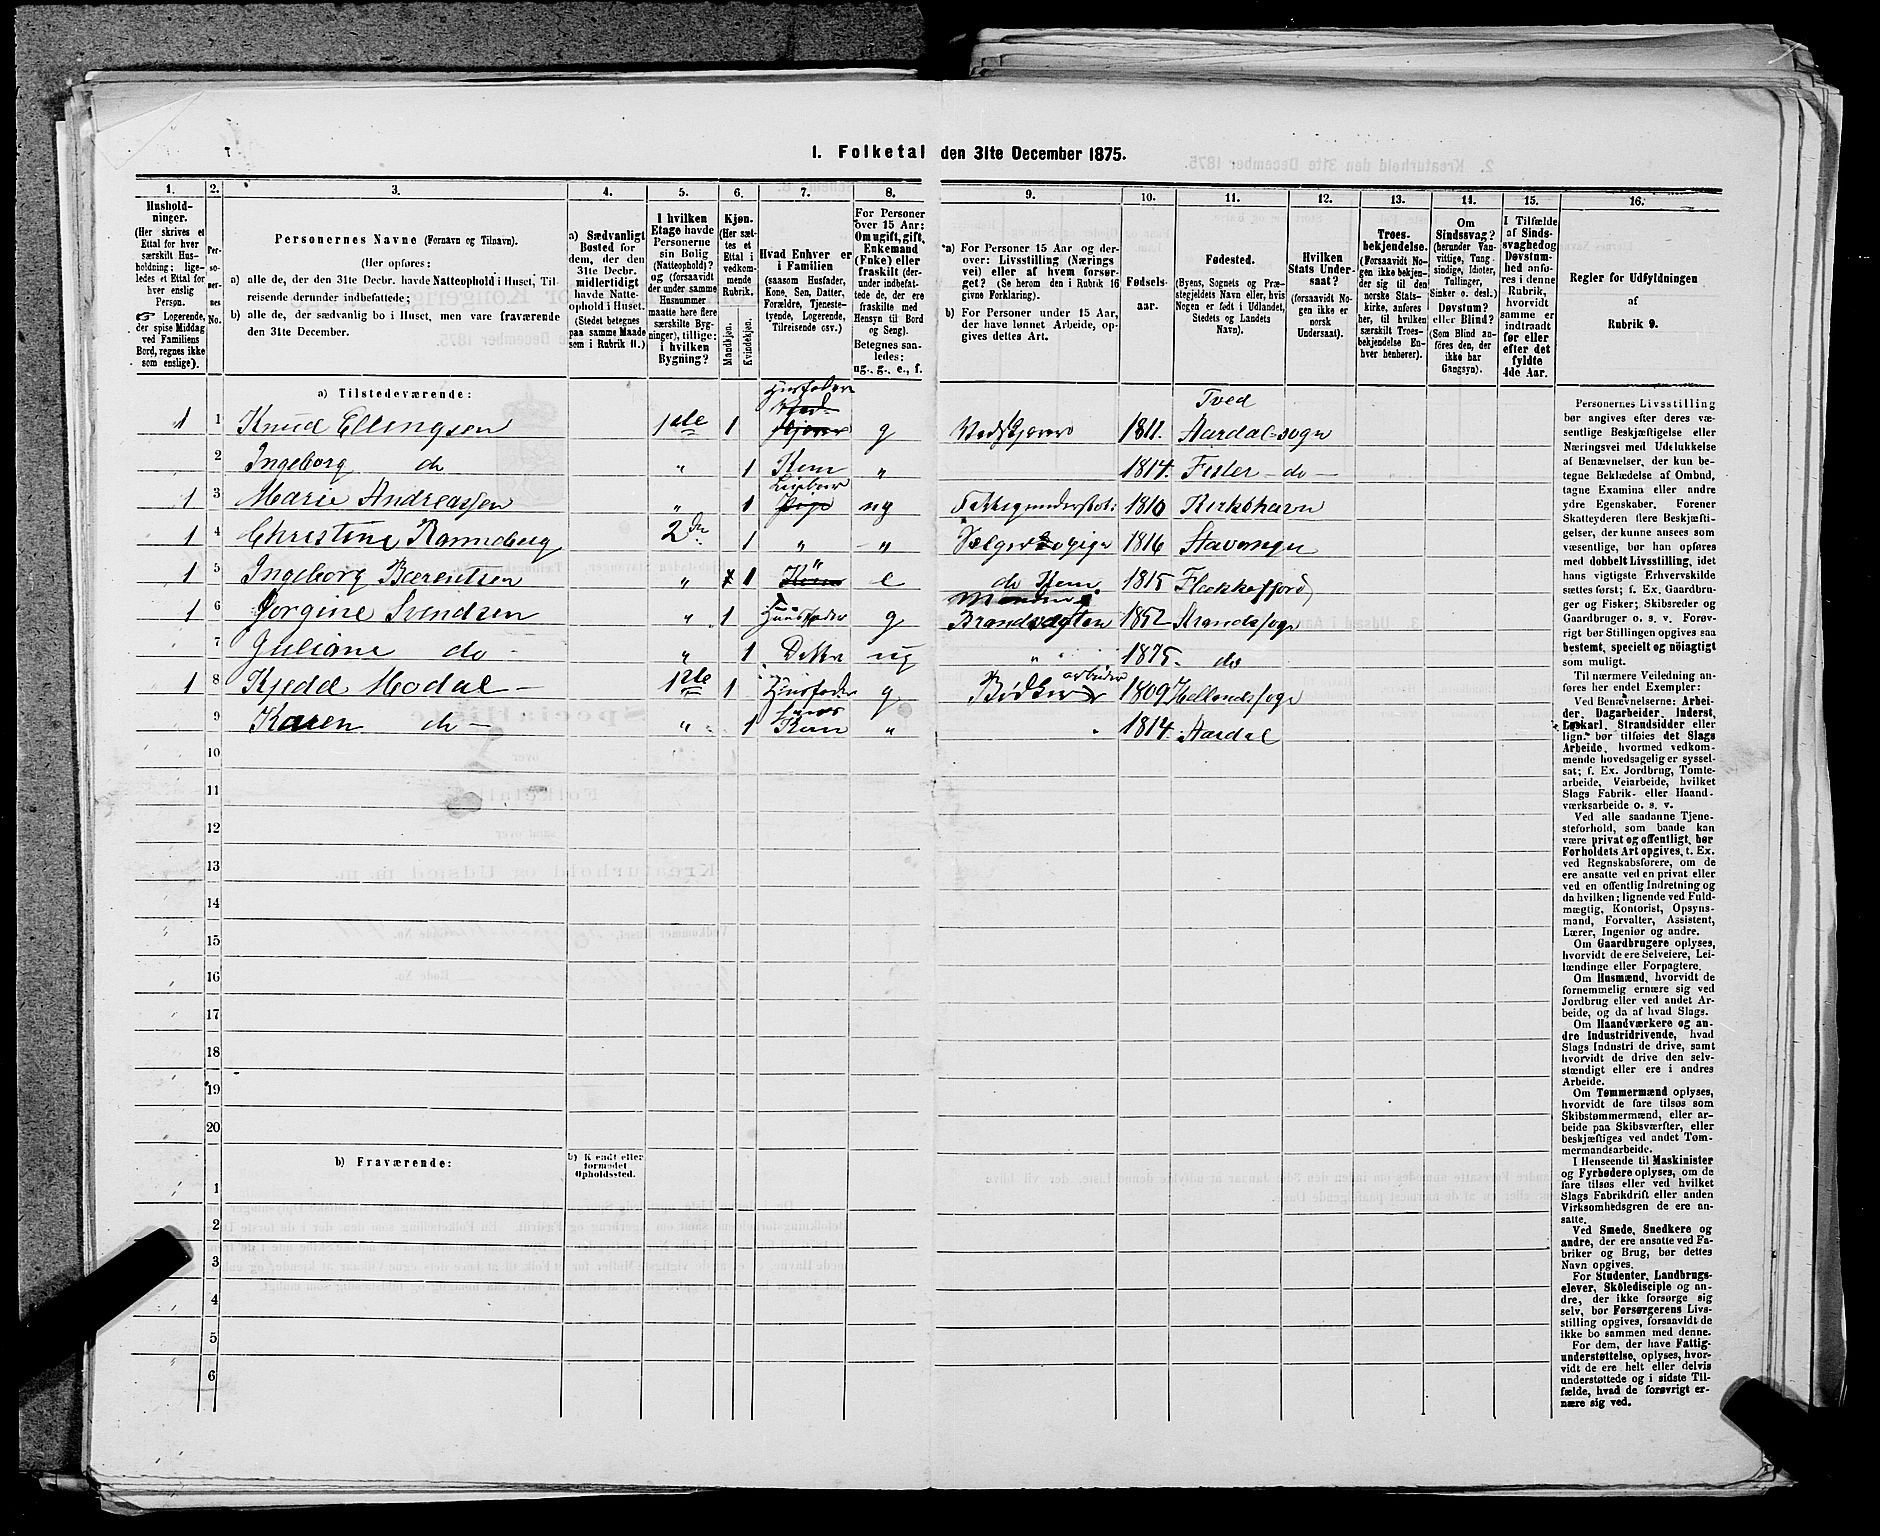 1. Folketal den 31te December 1875.
1. 2. 3. 4. 5. 6. 7. 8. 9. 10. 11. 12. 13. 14. 15. 16.
Hushold-
ninger.
(Her skrives et
Ettal for hver
særskilt Hus-
holdning; lige-
ledes et Ettal for
hver enslig
Person.
Logerende,
der spise Middag
ved Familiens
Bord, regnes ikke
som enslige).
Per-
so-
ner-
nes
No.
Personernes Navne (Fornavn og Tilnavn).
(Her opføres:
a) alle de, der den 31te Decbr. havde Natteophold i Huset, Til-
reisende derunder indbefattede;
b) alle de, der sædvanlig bo i Huset, men vare fraværende
den 31te December.
a) Sædvanligt
Bosted for
dem, der den
31te Decbr.
midlertidigt
havde Natte-
ophold i Huset.
(Stedet betegnes
paa samme Maade
som i Rubrik 11.)
I hvilken
Etage havde
Personerne
sin Bolig
(Natteophold)?
og (forsaavidt
der under samme
Husnummer
maatte høre flere
særskilte Byg-
ninger), tillige:
i hvilken
Bygning?
Kjøn.
(Her sæt-
tes et
Ettal i
vedkom-
mende
Rubrik.
Mandkjøn.
Kvindekjøn.
Hvad Enhver er
i Familien
(saasom Husfader,
Kone, Søn, Datter,
Forældre, Tjeneste-
tyende, Logerende,
Tilreisende csv.)
For Personer
over 15 Aar:
Om ugift, gift,
Enkemand
(Enke) eller
fraskilt (der-
under indbefat-
tede de, der ere
fraskilte med
Hensyn til Bord
og Seng).
Betegnes saa-
ledes:
ug., g., e., f.
a) For Personer 15 Aar og der-
over: Livsstilling (Nærings
vei) eller af hvem forsør-
get? (Se herom den i Rubrik 16
givne Forklaring).
b) For Personer under 15 Aar,
der have lønnet Arbeide, op-
gives dettes Art.
Fødsels-
aar.
Fødested.
(Byens, Sognets og Præ-
stegjeldets Navn eller, hvis
Nogen er født i Udlandet,
Stedets og Landets
Navn).
Hvilken
Stats Under-
saat?
(forsaavidt No-
gen ikke er
norsk
Undersaat).
Troes-
bekjendelse.
(Forsaavidt No-
gen ikke bekjen-
der sig til den
norske Stats-
kirke, anføres
her, til hvilken
særskilt Troes-
bekjendelse En-
hver henhører).
Om
Sindssvag?
(herunder Van-
vittige, Tung-
sindige, Idioter,
Tullinger,
Sinker o. desl.)
Døvstum?
eller Blind?
(Som Blind an-
føres den, der
ikke har
Gangsyn).
I Tilfælde
af Sinds-
svaghed og
Døvstum-
hed anfø-
res i denne
Rubrik,
hvorvidt
samme er
indtraadt
før eller
efter det
fyldte
4de Aar.
Regler for Udfyldningen
af
Rubrik 9.
a) Tilstedeværende:
1 1 Knud Ellingsen 1ste 1 Husfader g Vedskjærer 1811. Tved Aardal sogn
2 Ingeborg do „ 1 Kone „ 1814. Fister - do -
1 3 Marie Andreassen „ 1 Logerer ug Fattigunderstøt: 1810 Kirkehavn
1 4 Christine Ranneberg 2den 1 „ „ 1816 Stavanger
1 5 Ingeborg Barentsen „ 1 „ e do Hem 1815 Flekkefjord
1 6 Jørgine Svendsen „ 1 Huusfader g Brandvagten 1852 Strandsogn
7 Juliane do - „ 1 Datter ug „ „ 1875. do
1 8 Kjedd Modal - 1ste 1 Husfader g Bødker arbeider 1809 Hellandssogn
9 Karen do - „ 1 hans Kone „ 1814. Aardal
10
11
12
13
14
15
16
17
18
19
20
b) Fraværende:
b) Kendt eller
formodet
Opholdssted.
1
2
3
4
5
6
Personernes Livsstilling
bør angives efter deres væ-
sentlige Beskjæftigelse eller
Næringsvei med Udelukkelse
af Benævnelser, der kun be-
tegne Beklædelse af Ombud,
tagne Examina eller andre
ydre Egenskaber. Forener
Skatteyderen flere Beskjæfti-
gelser, der kunne ansees som
væsentlige, bør han opføres
med dobbelt Livsstilling, idet
hans vigtigste Erhvervskilde
sættes først; f. Ex. Gaardbru-
ger og Fisker; Skibsreder og
Gaardbruger o. s. v. Forøv-
rigt bør Stillingen opgives saa
bestemt, specielt og nöiagtigt
som muligt.
Til nærmere Veiledning an-
føres her endel Exempler:
Ved Benævnelserne: Arbei-
der, Dagarbeider, Inderst,
Løskarl, Strandsidder eller
lign. bør tilføies det Slags
Arbeide, hvormed vedkom-
mende hovedsagelig er syssel-
sat; f. Ex. Jordbrug, Tomte-
arbeide, Veiarbeide, hvilket
Slags Fabrik- eller Haand-
værksarbeide o. s. v.
Ved alle saadanne Tjene-
steforhold, som baade kan
være privat og offentligt, bør
Forholdets Art opgives, t. Ex.
ved Regnskabsførere, om de
ere ansatte ved en privat eller
ved en offentlig Indretning og
da hvilken; lignende ved Fuld-
mægtig, Kontorist, Opsyns-
mand, Forvalter, Assistent,
Lærer, Ingeniør og andre.
Om Gaardbrugere oplyses,
hvorvidt de ere Selveiere, Lei-
lændinge eller Forpagtere.
Om Husmænd, hvorvidt de
fornemmelig ernære sig ved
Jordbrug eller ved andet Ar-
beide, og da af hvad Slags.
Om Haandværkere og an-
dre Industridrivende, hvad
Slags Industri de drive, samt
hvorvidt de drive den selv-
stændigt eller ere i andres
Arbeide.
Om Tømmermænd oplyses,
hvorvidt de fare tilsøs som
Skibstømmermænd, eller ar-
beide paa Skibsværfter, eller
beskjæftiges ved andet Tøm-
mermandsarbeide.
I Henseende til Maskinister
og Fyrbødere oplyses, om de
fare tilsøs eller ved hvilket
Slags Fabrikdrift eller anden
Virksomhedsgren de ere an-
satte.
Ved Smede, Snedkere og
andre, der ere ansatte ved Fa-
briker og Brug, bør dettes
Navn opgives.
For Studenter, Landbrugs-
elever, Skoledisciple og an-
dre, der ikke forsørge sig
selv, bør Forsørgerens Livs-
stilling opgives, forsaavidt de
ikke bo sammen med denne.
For dem, der have Fattig-
understøttelse, oplyses, hvor-
vidt de ere helt eller delvis
understøttede og i sidste Til-
fælde, hvad de forøvrigt er-
nære sig ved.